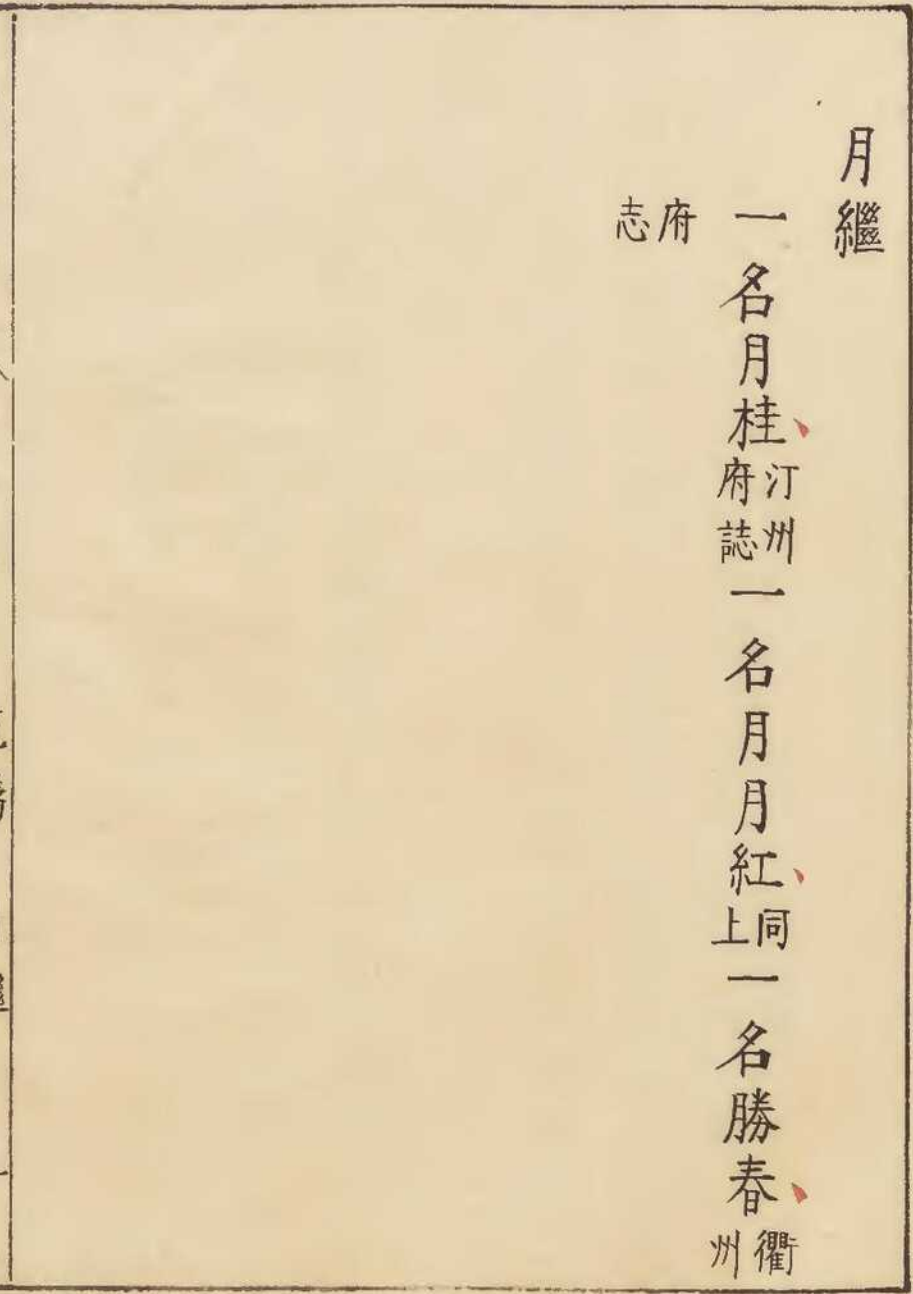 月繼
一名月桂、汀州府誌一名月月紅、同上一名勝春、衢州
府志